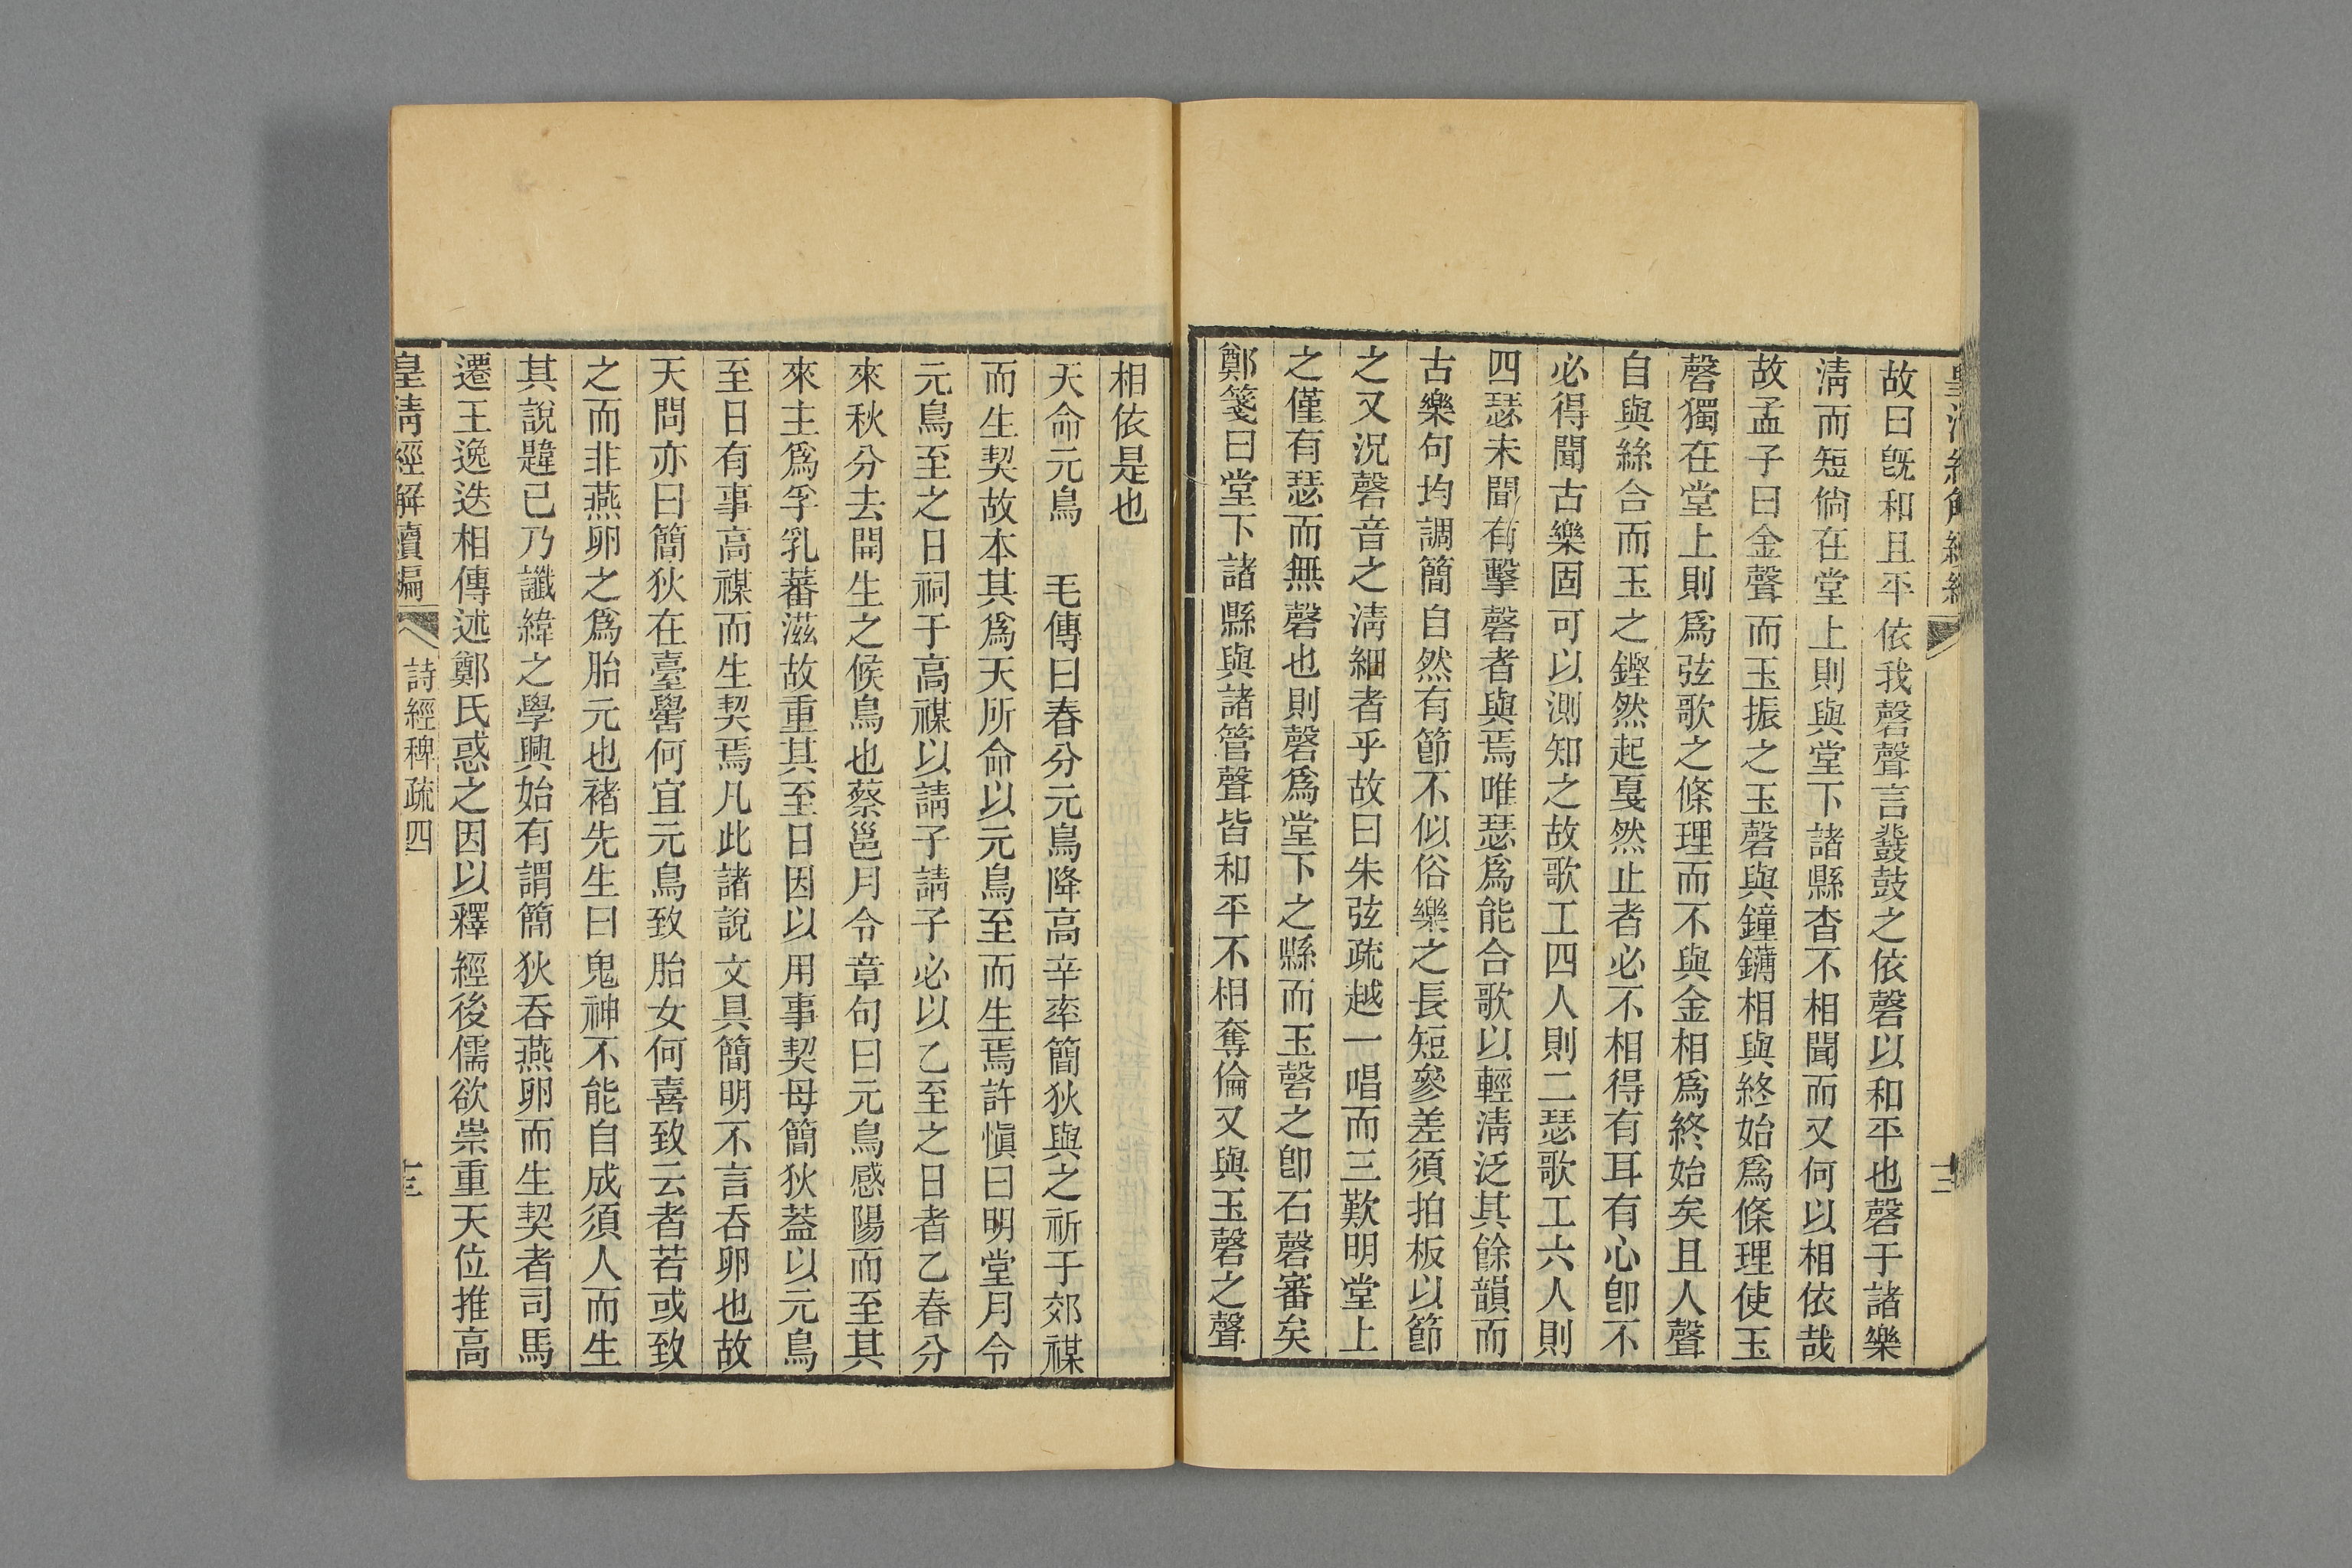 故曰旣和且平依我磬聲言鼗鼓之依磬以和平也磬于諸樂
淸而短倘在堂上則與堂下諸縣杳不相聞而又何以相依哉
故孟子曰金聲而玉振之玉磬與鐘鏞相與終始爲條理使玉
磬獨在堂上則爲弦歌之條理而不與金相爲終始矣且人聲
自與絲合而玉之鏗然起戛然止者必不相得有耳有心卽不
必得聞古樂固可以測知之故歌工四人則二瑟歌工六人則
四瑟未聞有擊磬者與焉唯瑟爲能合歌以輕淸泛其餘韻而
古樂句均調簡自然有節不似俗樂之長短參差須拍板以節
之又況磬音之淸細者乎故曰朱弦疏越一唱而三歎明堂上
之僅有瑟而無磬也則磬爲堂下之縣而玉磬之卽石磬審矣
鄭箋曰堂下諸縣與諸管聲皆和平不相奪倫又與玉磬之聲
相依是也
天命元鳥　毛傳曰春分元鳥降高辛率簡狄與之祈于郊禖
而生契故本其爲天所命以元鳥至而生焉許愼曰明堂月令
元鳥至之日祠于高禖以請子請子必以乙至之日者乙春分
來秋分去開生之候鳥也蔡邕月令章句曰元鳥感陽而至其
來主爲孚乳蕃滋故重其至日因以用事契母簡狄蓋以元鳥
至日有事高禖而生契焉凡此諸說文具簡明不言吞卵也故
天問亦曰簡狄在臺嚳何宜元鳥致胎女何喜致云者若或致
之而非燕卵之爲胎元也褚先生曰鬼神不能自成須人而生
其說韙已乃讖緯之學興始有謂簡狄吞燕卵而生契者司馬
遷王逸迭相傳述鄭氏惑之因以釋經後儒欲崇重天位推高
皇淸經解續編
詩經稗疏四
十三